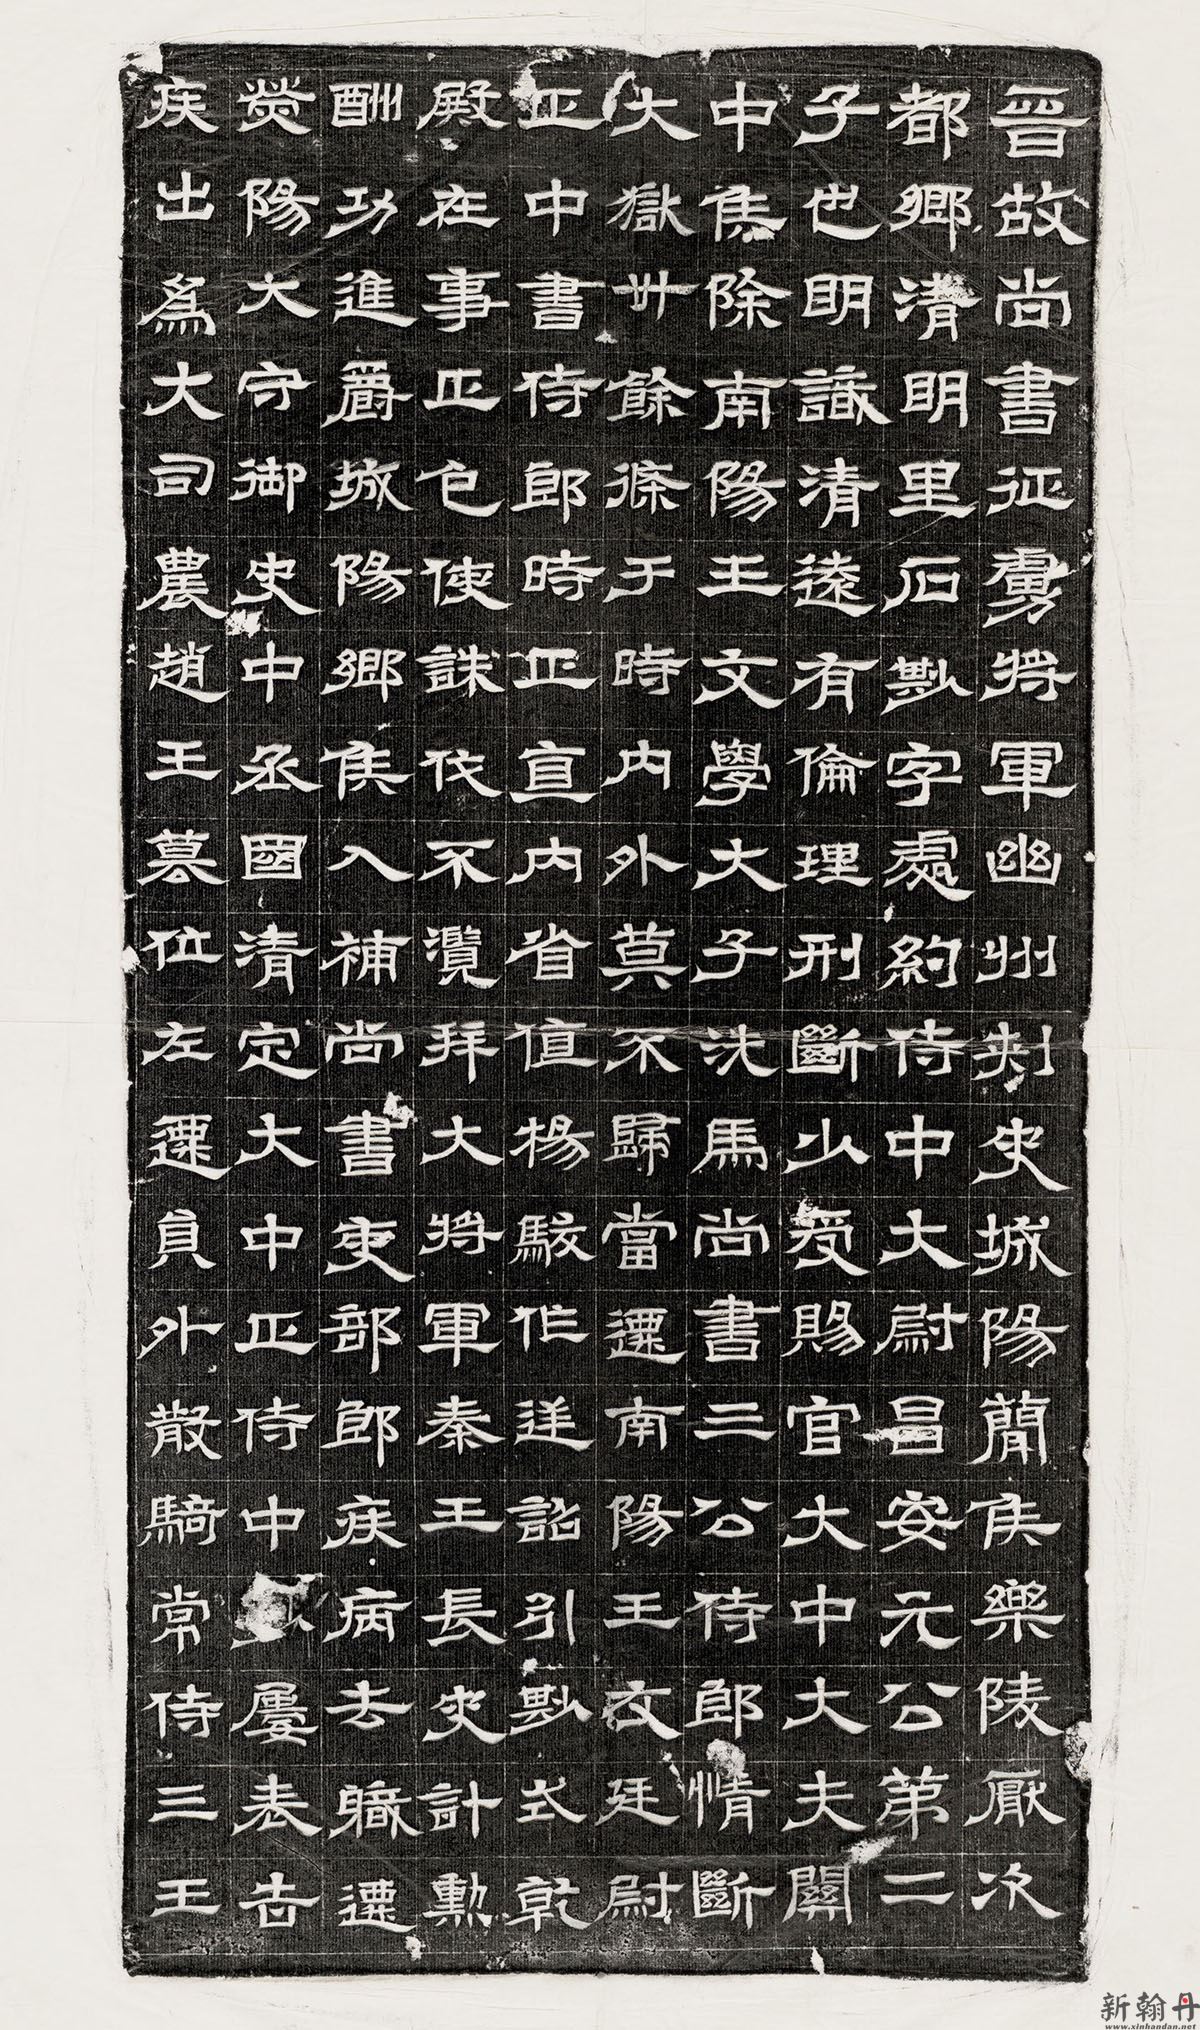 晉故尚書征虜將軍幽州刾史城陽簡侯樂陵厭次
都鄉清明里石尠字處約侍中大尉昌安元公第二
子也明識清遠有倫理刑斷少受賜官大中大夫關
中侯除南陽王文學大子洗馬尚書三公侍郎情斷
大獄卅餘條于時內外莫不歸當遷南陽王友廷尉
正中書侍郎時正直內省值楊駿作逆詔引尠式乾
殿在事正色使誅伐不濫拜大將軍秦王長史計勳
酬功進爵城陽鄉侯入補尚書吏部郎疾病去職遷
熒陽大守御史中丞國清定大中正侍中屢表告
疾出為大司農趙王篡位左遷員外散騎常侍三王
新翰丹
www.xinhandan.net